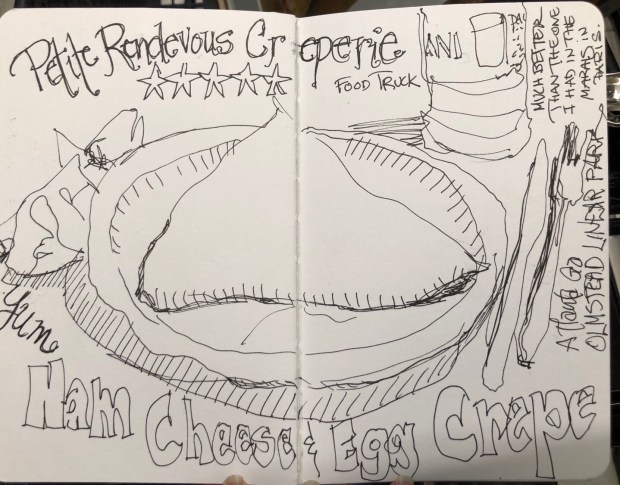 Petite Rendevous Creperie
FOOD TRUCK
ANI
MUCH BETTER
THAN THE ONE
I HAD IN THE
MARAIS IN
PARIS.
Atlanta Ga
OLMSTEAD LINEAR PARK
Yum
Ham Cheese & Egg Crepe